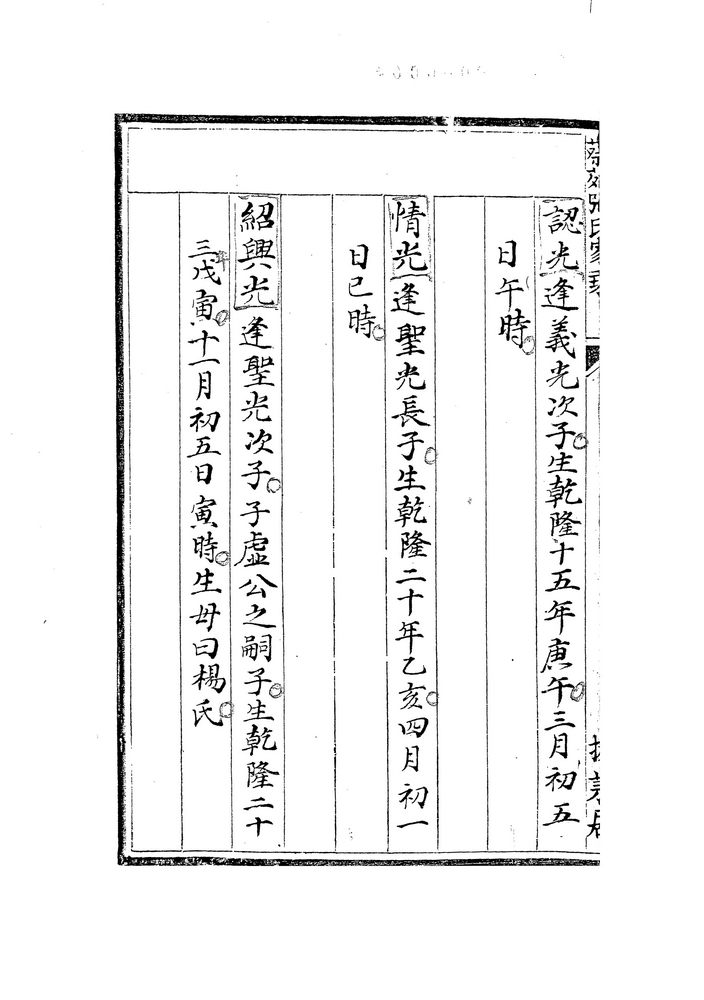 張氏家
認光逢義光次子生乾隆十五年庚午三月初五
日午時
情光逢聖光長子生乾隆二十年乙亥四月初一
日巳時
紹興光逢聖光次子子虛公之嗣子生乾隆二十
三年戊寅十一月初五日寅時生母曰楊氏